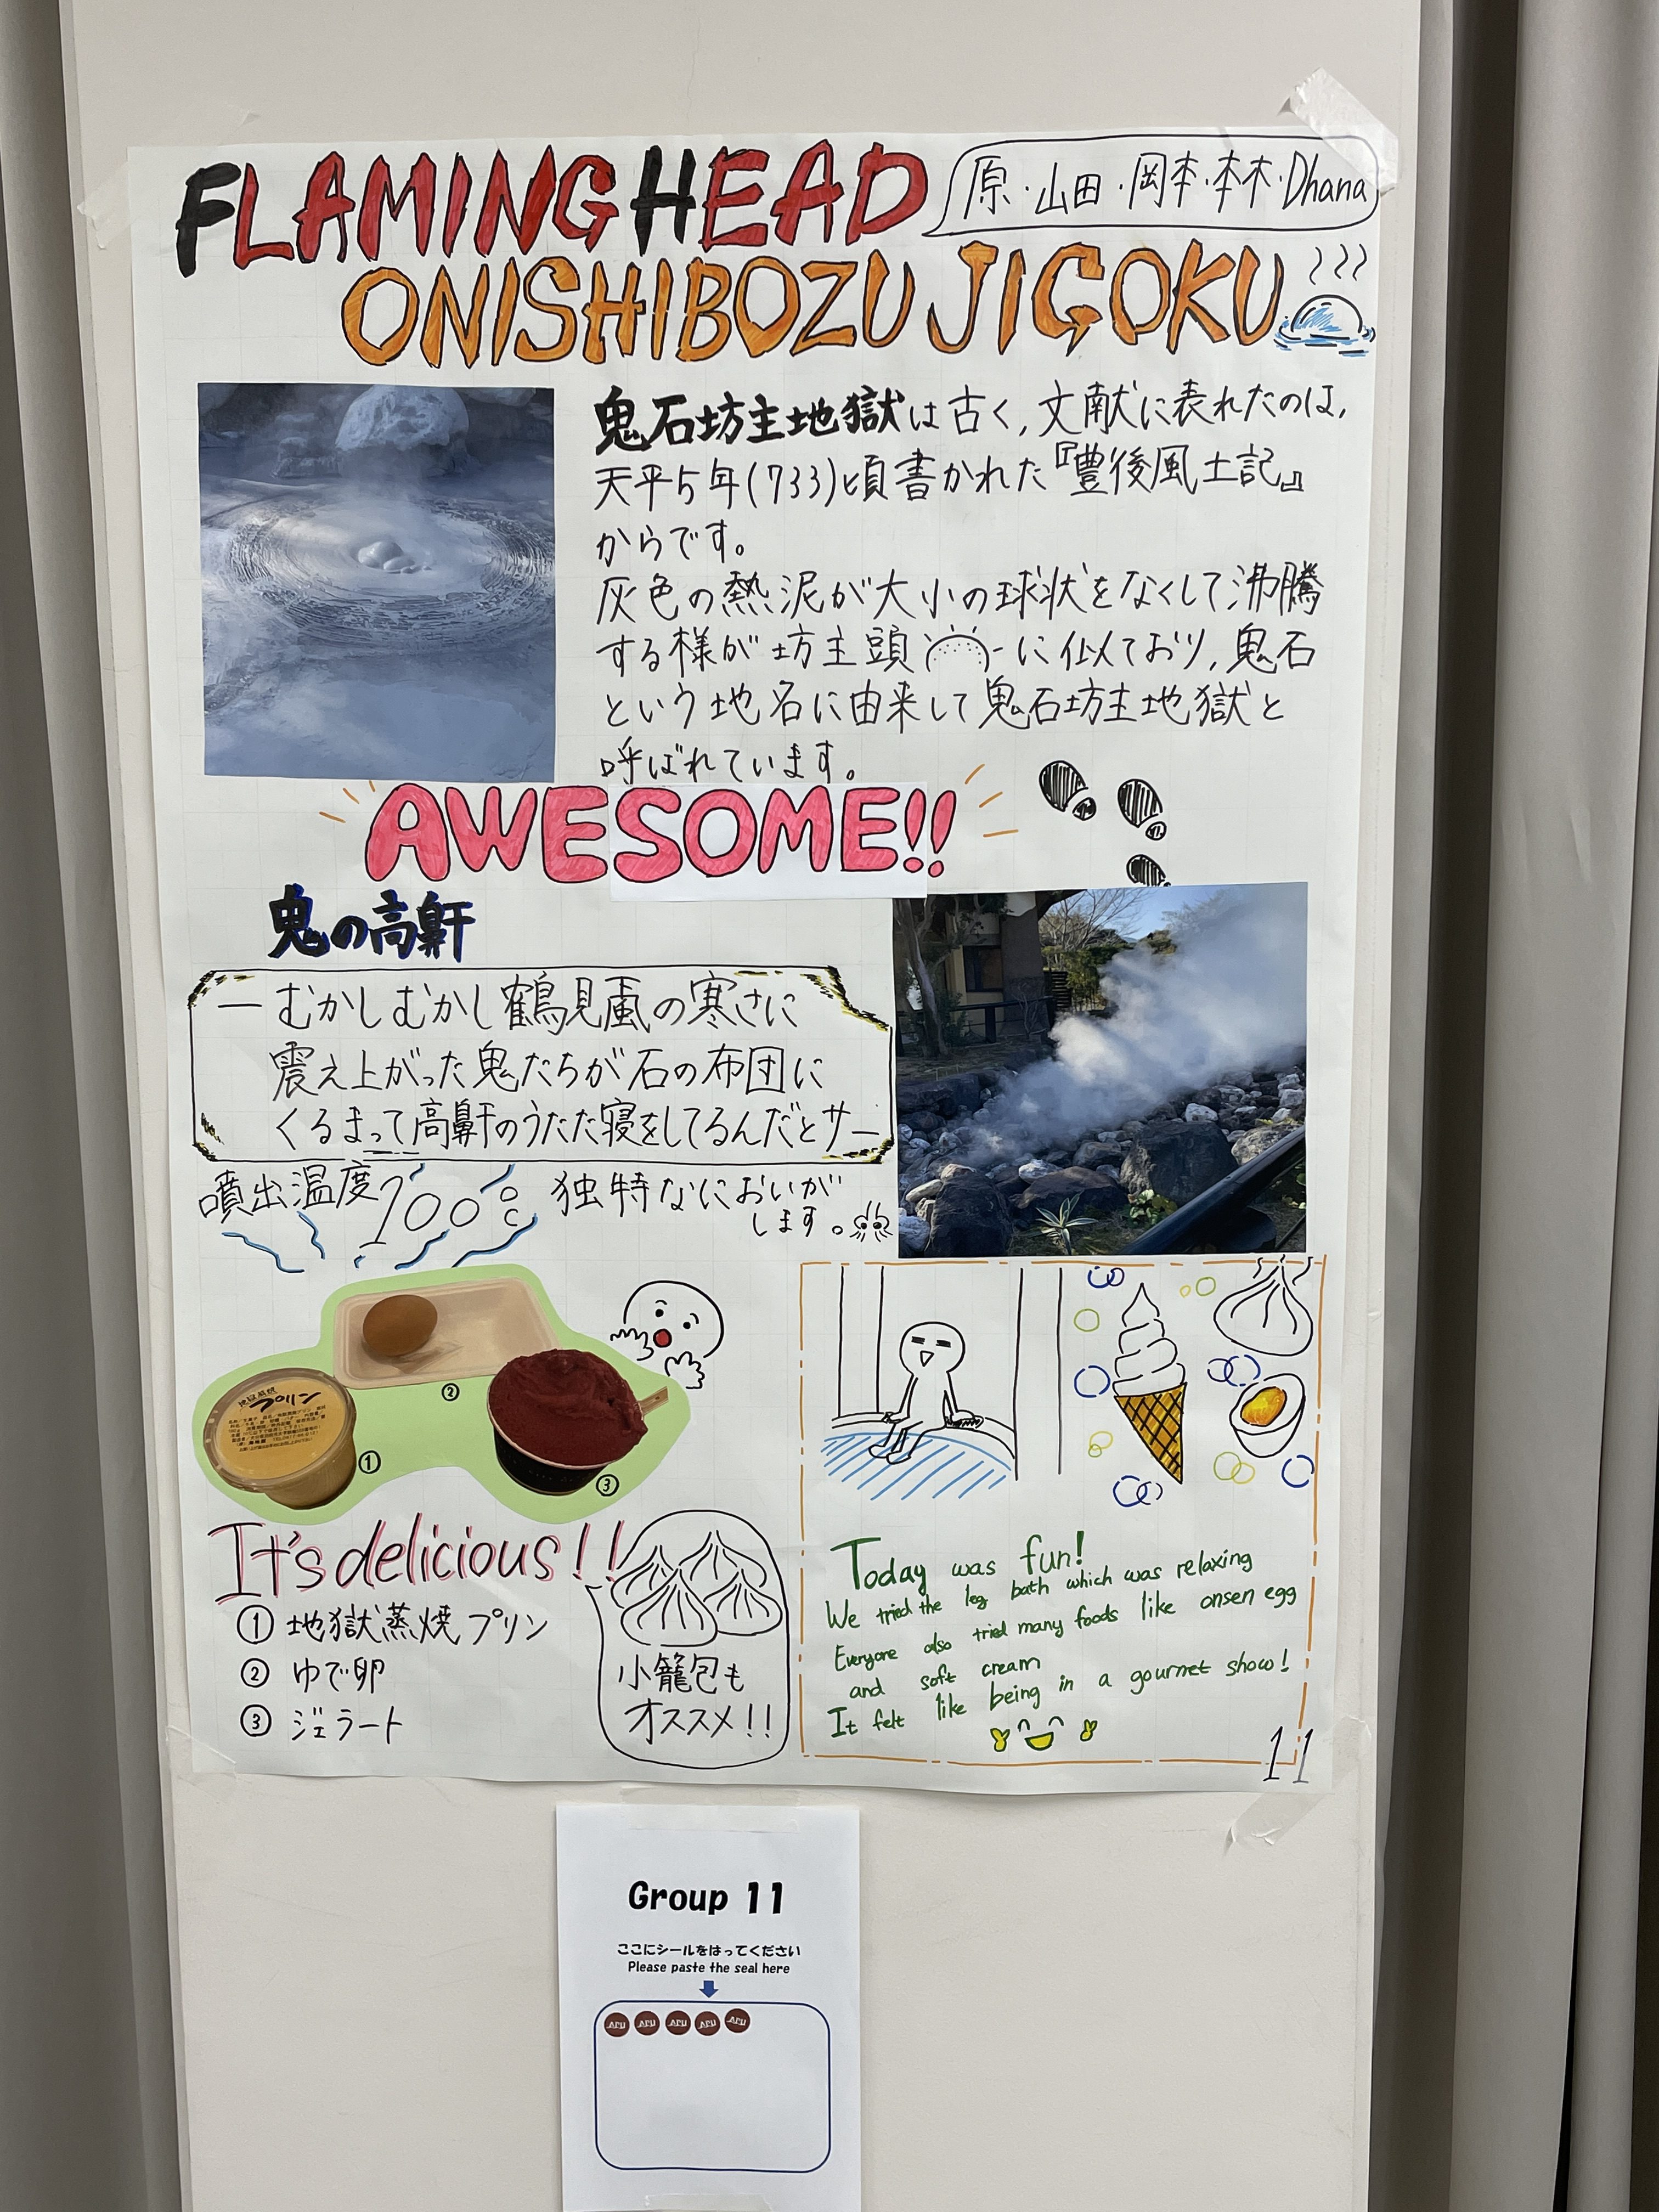 FLAMING HEAD
原・山田・岡本・林・Dhana
ONISHIBOZU JIGOKU
鬼石坊主地獄は古く,文献に表れたのは,
天平5年(733)頃書かれた『豊後風土記』
からです。
灰色の熱泥が大小の球状をなくして沸騰
する様が坊主頭に似ており,鬼石
という地名に由来して鬼石坊主地獄と
呼ばれています。
AWESOME!!
鬼の高鼾
―むかしむかし鶴見颪の寒さに
震え上がった鬼たちが石の布団に
くるまって高鼾のうたた寝をしてるんだとサ―
噴出温度100℃
独特なにおいが
します。
プリン
①
②
③
It's delicious!!
① 地獄蒸焼プリン
② ゆで卵
③ ジェラート
小籠包も
オススメ!!
Today was fun!
We tried the leg bath which was relaxing
Everyone also tried many foods like onsen egg
and soft cream
It felt like being in a gourmet show!
11
Group 11
ここにシールをはってください
Please paste the seal here